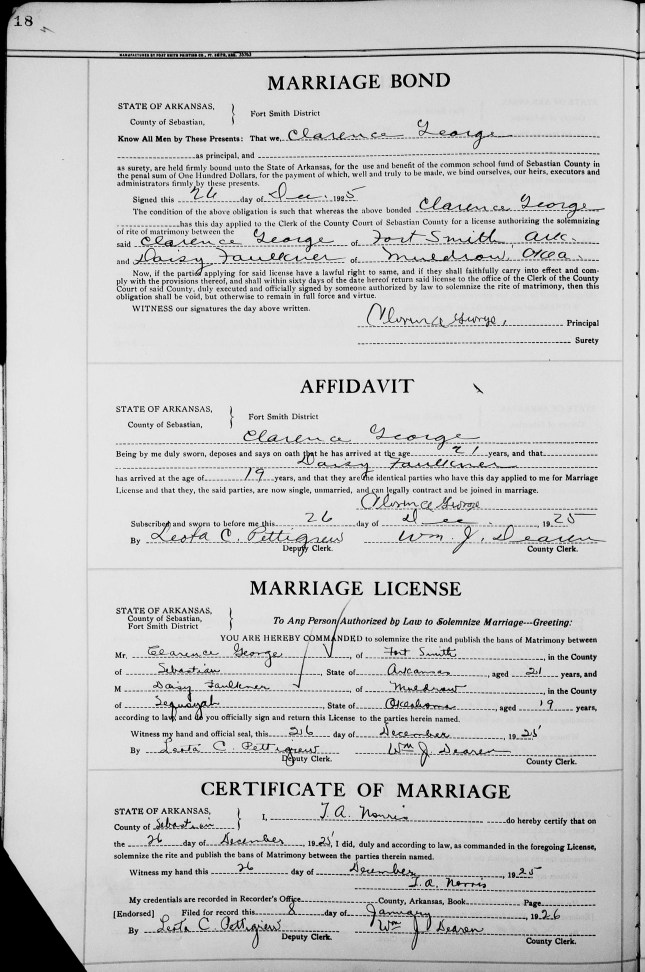 18
MANUFACTURED BY FORT SMITH PRINTING CO., FT. SMITH, ARK.
MARRIAGE BOND
STATE OF ARKANSAS,
County of Sebastian,
Fort Smith District
Know All Men by These Presents: That we, Clarence George
as principal, and
as surety, are held firmly bound unto the State of Arkansas, for the use and benefit of the common school fund of Sebastian County in
the penal sum of One Hundred Dollars, for the payment of which, well and truly to be made, we bind ourselves, our heirs, executors and
administrators firmly by these presents.
Signed this 26 day of Dec 1925
The condition of above obligation is such that whereas the above bonded Clarence George
has this day applied to the Clerk of the County Court of Sebastian County for a license authorizing the solemnizing
of rite of matrimony between the
said Clarence George of Fort Smith, Ark.
and Daisy Faulkner of Muldrow, Okla.
Now, if the parties applying for said license have a lawful right to same, and if they shall faithfully carry into effect and com-
ply with the provisions thereof, and shall within sixty days of the date hereof return said license to the office of the Clerk of the County
Court of said County, duly executed and officially signed by someone authorized by law to solemnize the rite of matrimony, then this
obligation shall be void, but otherwise to remain in full force and virtue.
WITNESS our signatures the day above written.
Clarence George, Principal
Surety
AFFIDAVIT
STATE OF ARKANSAS,
County of Sebastian,
Fort Smith District
Clarence George
Being by me duly sworn, deposes and says on oath that he has arrived at the age 21 years, and that
Daisy Faulkner
has arrived at the age of 19 years, and that they are the identical parties who have this day applied to me for Marriage
License and that they, the said parties, are now single, unmarried, and can legally contract and be joined in marriage.
Clarence George
Subscribed and sworn to before me this 26 day of Dec. 1925
By Lesta C. Pettigrew Wm. J. Dearen
Deputy Clerk. County Clerk.
MARRIAGE LICENSE
STATE OF ARKANSAS,
County of Sebastian,
Fort Smith District
To Any Person Authorized by Law to Solemnize Marriage---Greeting:
YOU ARE HEREBY COMMANDED to solemnize the rite and publish the bans of Matrimony between
Mr. Clarence George, of Fort Smith, in the County
of Sebastian, State of Arkansas, aged 21 years, and
M Daisy Faulkner, of Muldrow, in the County
of Sequoyah, State of Oklahoma, aged 19 years,
according to law, and do you officially sign and return this License to the parties herein named.
Witness my hand and official seal, this 26 day of December, 1925
By Lesta C. Pettigrew Wm J. Dearen
Deputy Clerk. County Clerk.
CERTIFICATE OF MARRIAGE
STATE OF ARKANSAS,
County of Sebastian
I, T. A. Norris do hereby certify that on
the 26 day of December, 1925, I did, duly and according to law, as commanded in the foregoing License,
solemnize the rite and publish the bans of Matrimony between the parties therein named.
Witness my hand this 26 day of December, 1925
T. A. Norris
My credentials are recorded in Recorder's Office County, Arkansas, Book Page
[Endorsed] Filed for record this 8 day of January, 1926
By Lesta C. Pettigrew Wm J Dearen
Deputy Clerk. County Clerk.